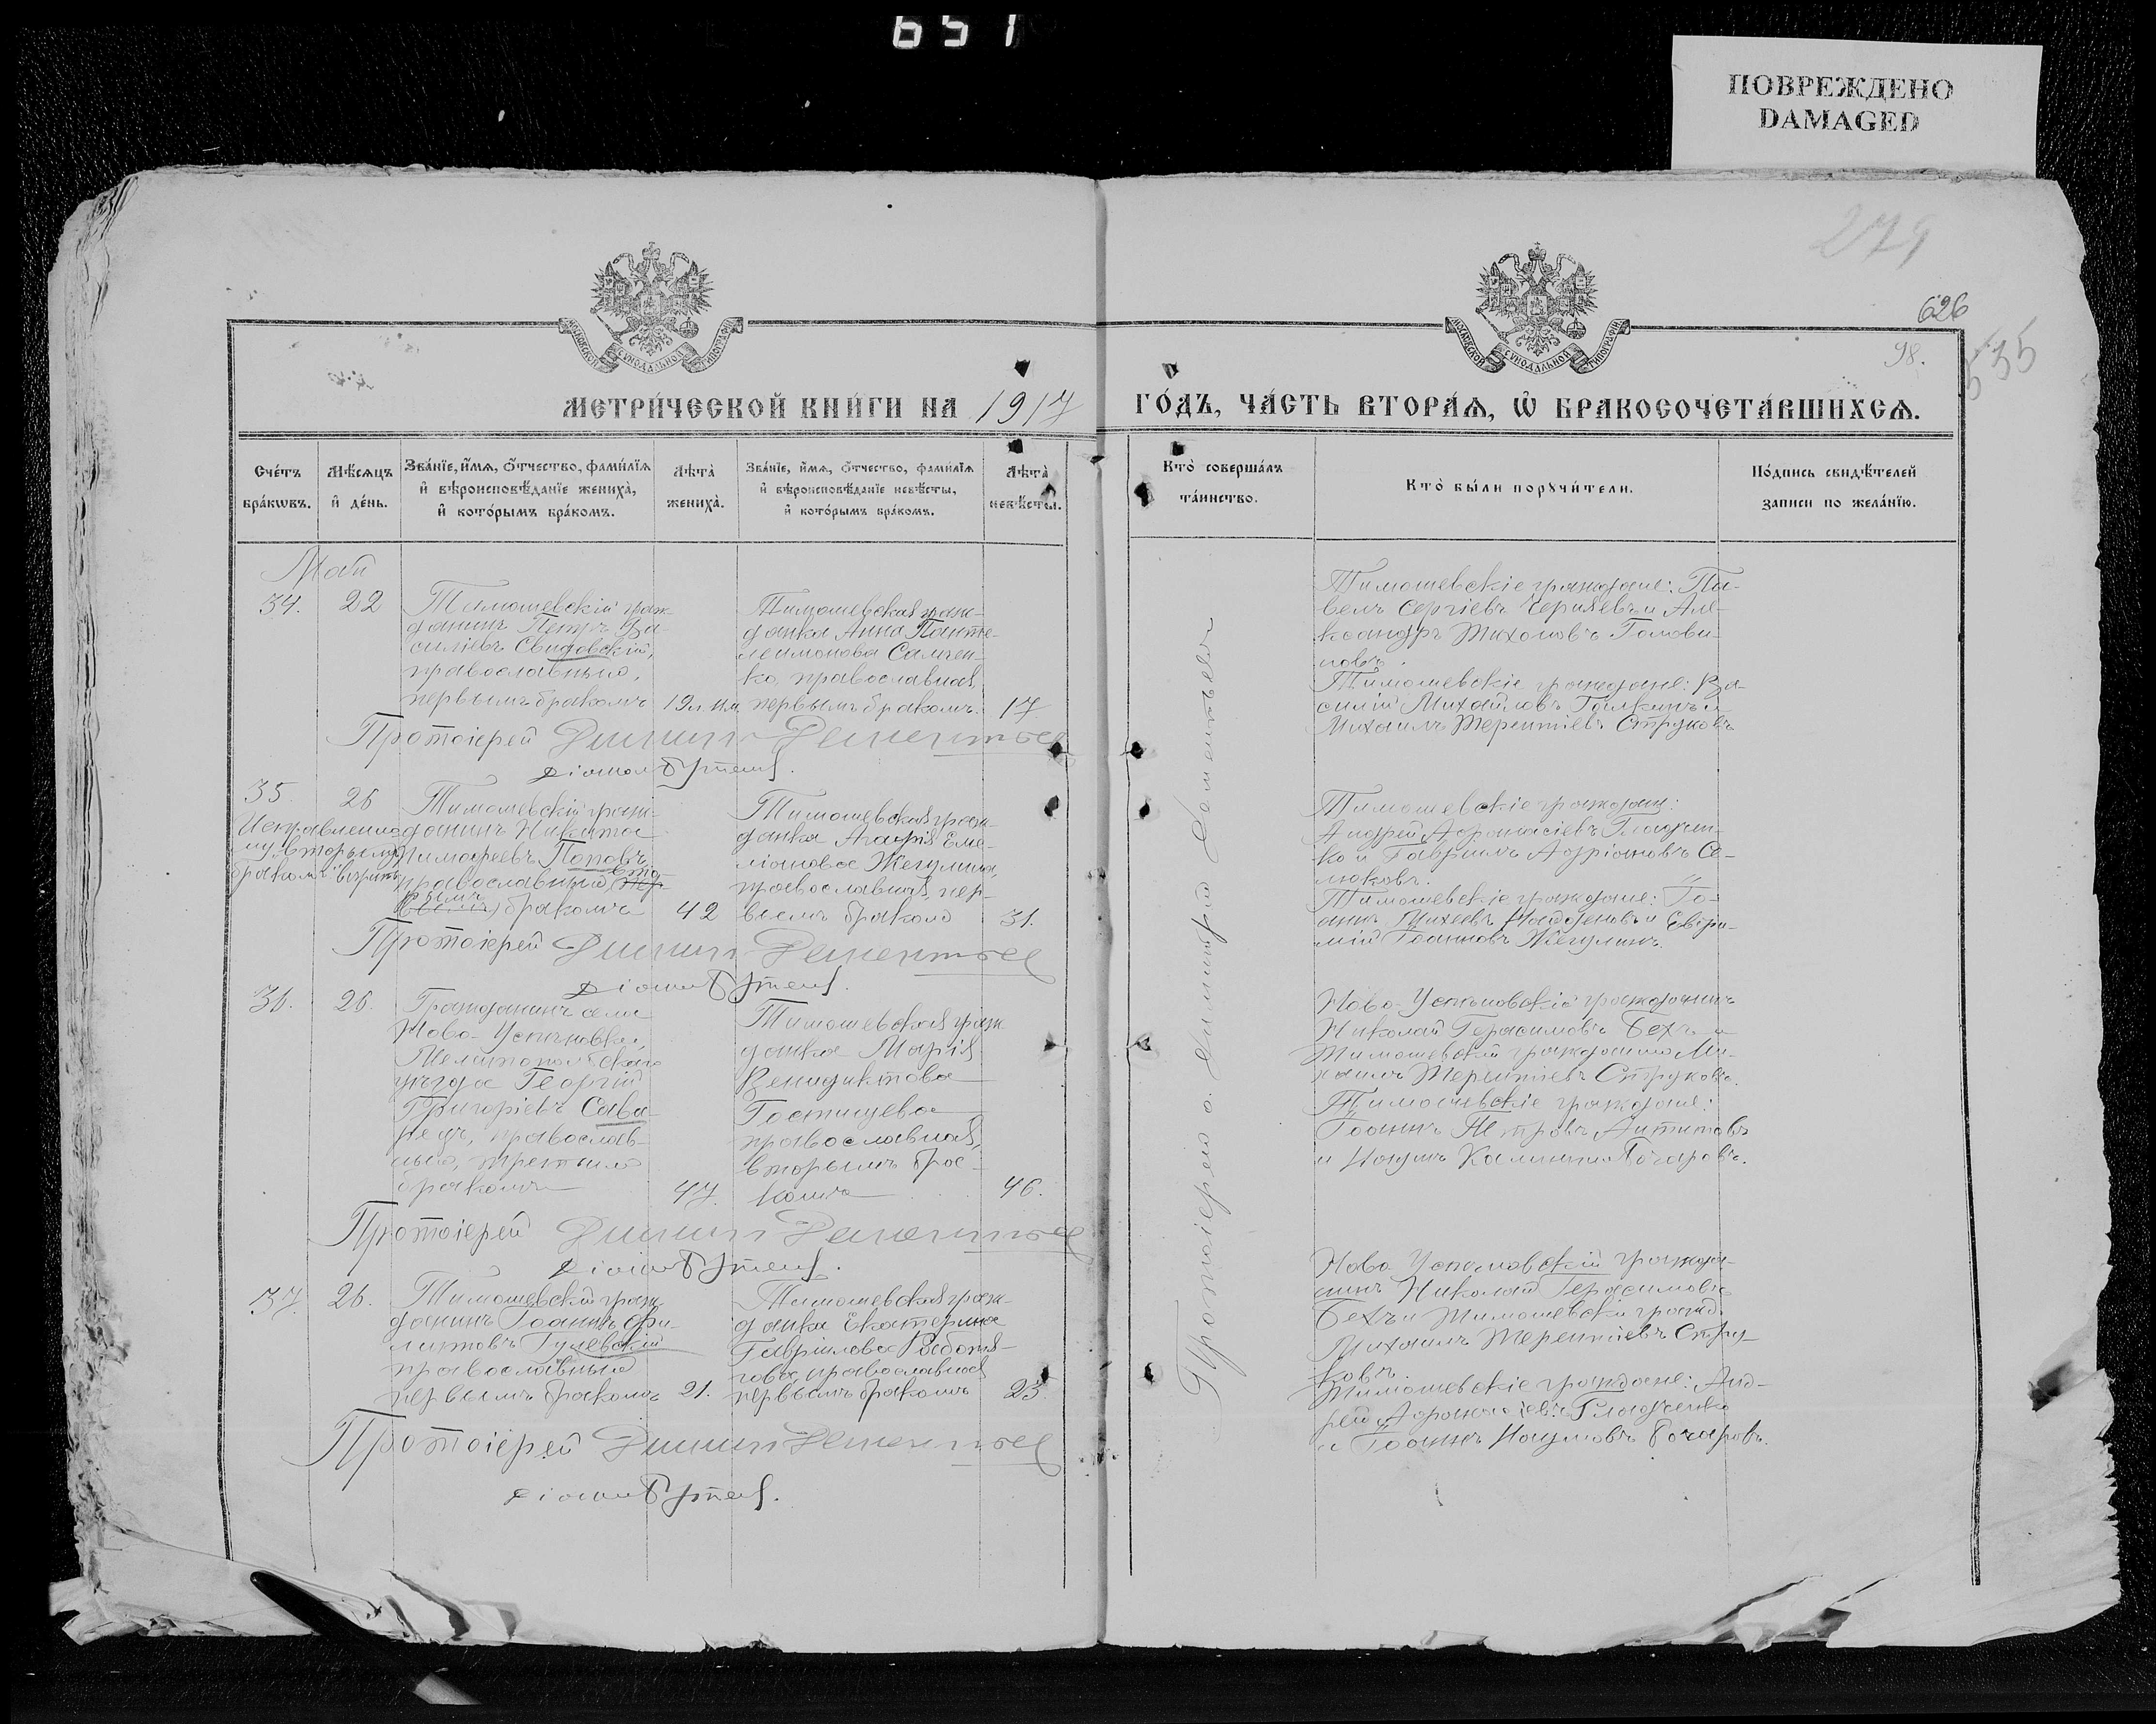 651
ПОВРЕЖДЕНО
DAMAGED
279
626
98.
535
МОСКОВСКОЙ СѴНОДАЛЬНОЙ ТИПОГРАФІИ
МОСКОВСКОЙ СѴНОДАЛЬНОЙ ТИПОГРАФІИ
МЕТРИ́ЧЕСКОЙ КНИ́ГИ НА 1917 ГО́ДЪ, ЧА́СТЬ ВТОРА́Ѧ, Ѡ҆ БРАКОСОЧЕТА́ВШИХСѦ.
Сче́тъ
бра́кѡвъ.
Мѣ́сѧцъ
и҆ де́нь.
Зва́нїе, и҆́мѧ, ѻ҆́тчество, фами́лїѧ
и҆ вѣроисповѣ́данїе жениха̀,
и҆ кото́рымъ бра́комъ.
Лѣта̀
жениха̀.
Зва́нїе, и҆́мѧ, ѻ҆́тчество, фами́лїѧ
и҆ вѣроисповѣ́данїе невѣ́сты,
и҆ кото́рымъ бра́комъ.
Лѣта̀
невѣ́сты.
Кто̀ соверша́лъ
та́инство.
Кто̀ бы́ли порꙋчи́тели.
По́дпись свидѣ́телей
записи по жела́нїю.
Май
34.
22
Тимошевскій граж-
данинъ Петръ Ва-
силіевъ Свидовскій,
православный,
первымъ бракомъ
19 л.
Тимошевская граж-
данка Анна Панте-
леимонова Самчен-
ко, православная,
первымъ бракомъ.
17
Тимошевскіе граждане: Па-
велъ Сергіевъ Черняевъ и Але-
ксандръ Тихоновъ Голови-
новъ.
Тимошевскіе граждане: Ва-
силій Михайловъ Галкинъ и
Михаилъ Терентіевъ Струковъ
Протоіерей Димитрій Дементьевъ
35.
26
Исправленно-
му "вторымъ
бракомъ" вѣрить
Тимошевскій граж-
данинъ Никита
Тимофеевъ Поповъ
православный, вто-
рымъ бракомъ
42
Тимошевская граж-
данка Агафія Еме-
ліанова Жегулина,
православная, пер-
вымъ бракомъ
31.
Тимошевскіе граждане:
Андрей Афанасіевъ Гладчен-
ко и Гавріилъ Адріановъ Се-
люковъ.
Тимошевскіе граждане: Іо-
аннъ Михеевъ Найденовъ и Евфи-
мій Іоанновъ Жегулинъ.
Протоіерей Димитрій Дементьевъ
36.
26.
Гражданинъ села
Ново-Успеновки,
Мелитопольскаго
уѣзда Георгій
Григоріевъ Сава-
рецъ, православ-
ный, третьимъ
бракомъ
47.
Тимошевская граж-
данка Марія
Венидиктова
Гостищева
православная,
вторымъ бра-
комъ
46.
Ново-Успеновскій гражданинъ
Николай Герасимовъ Бехъ и
Тимошевскій гражданинъ Ми-
хаилъ Терентіевъ Струковъ.
Тимошевскіе граждане:
Іоаннъ Петровъ Антиповъ
и Наумъ Бочаровъ.
Протоіерей Димитрій Дементьевъ
37.
26.
Тимошевскій граж-
данинъ Іоаннъ Фи-
липповъ Гулевскій
православный
первымъ бракомъ
21.
Тимошевская граж-
данка Екатерина
Гавріилова Работя-
гова, православная
первымъ бракомъ
23.
Ново-Успеновскій гражда-
нинъ Николай Герасимовъ
Бехъ и Тимошевскій гражд.
Михаилъ Терентіевъ Стру-
ковъ.
Тимошевскіе граждане: Анд-
рей Афанасіевъ Гладченко
и Іоаннъ Наумовъ Бочаровъ.
Протоіерей Димитрій Дементьевъ
Протоіерей о. Димитрій Дементьевъ